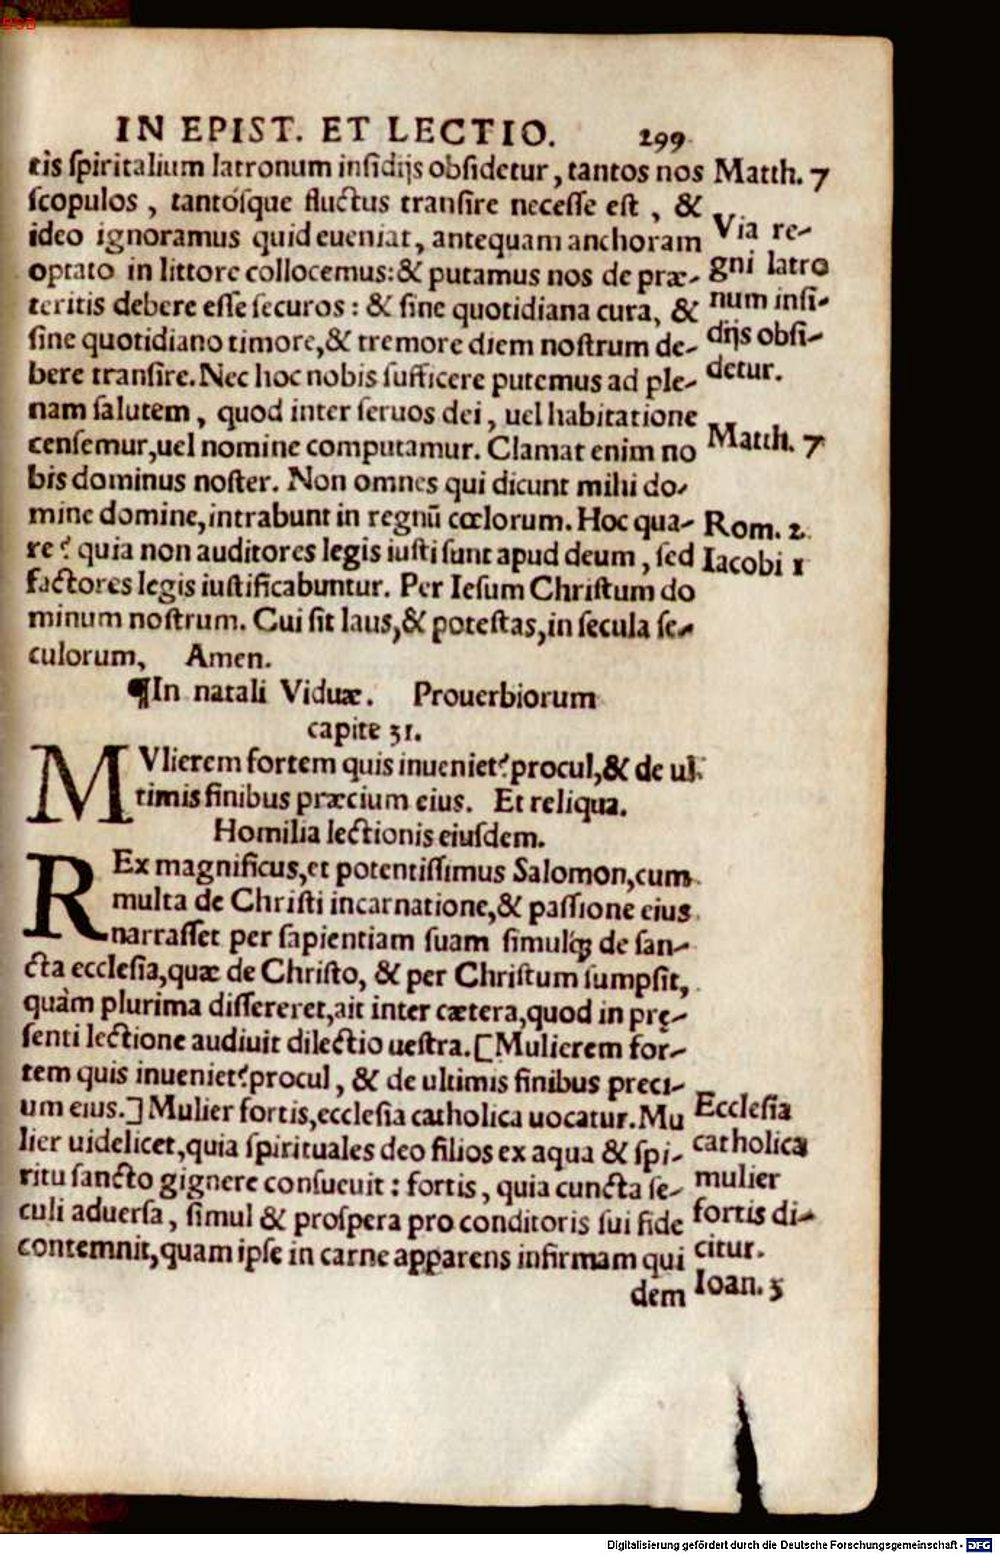 IN EPIST. ET LECTIO. 299
tis spiritalium latronum insidijs obsidetur, tantos nos
scopulos, tantósque fluctus transire necesse est, &
ideo ignoramus quid eueniat, antequam anchoram
optato in littore collocemus: & putamus nos de præ-
teritis debere esse securos: & sine quotidiana cura, &
sine quotidiano timore, & tremore diem nostrum de-
bere transire. Nec hoc nobis sufficere putemus ad ple-
nam salutem, quod inter seruos dei, uel habitatione
censemur, uel nomine computamur. Clamat enim no
bis dominus noster. Non omnes qui dicunt mihi do-
mine domine, intrabunt in regnū cœlorum. Hoc qua-
re? quia non auditores legis iusti sunt apud deum, sed
factores legis iustificabuntur. Per Iesum Christum do
minum nostrum. Cui sit laus, & potestas, in secula se-
culorum, Amen.
¶In natali Viduæ. Prouerbiorum
capite 31.
MVlierem fortem quis inueniet? procul, & de ul-
timis finibus præcium eius. Et reliqua.
Homilia lectionis eiusdem.
REx magnificus, et potentissimus Salomon, cum
multa de Christi incarnatione, & passione eius
narrasset per sapientiam suam simulq; de san-
cta ecclesia, quæ de Christo, & per Christum sumpsit,
quàm plurima dissereret, ait inter cætera, quod in prę-
senti lectione audiuit dilectio uestra. [Mulierem for-
tem quis inueniet? procul, & de ultimis finibus preci-
um eius.] Mulier fortis, ecclesia catholica uocatur. Mu
lier uidelicet, quia spirituales deo filios ex aqua & spi-
ritu sancto gignere consueuit: fortis, quia cuncta se-
culi aduersa, simul & prospera pro conditoris sui fide
contemnit, quam ipse in carne apparens infirmam qui
dem
Matth. 7
Via re-
gni latro
num insi-
dijs obsi-
detur.
Matth. 7
Rom. 2
Iacobi 1
Ecclesia
catholica
mulier
fortis di-
citur.
Ioan. 3
Digitalisierung gefördert durch die Deutsche Forschungsgemeinschaft - DFG